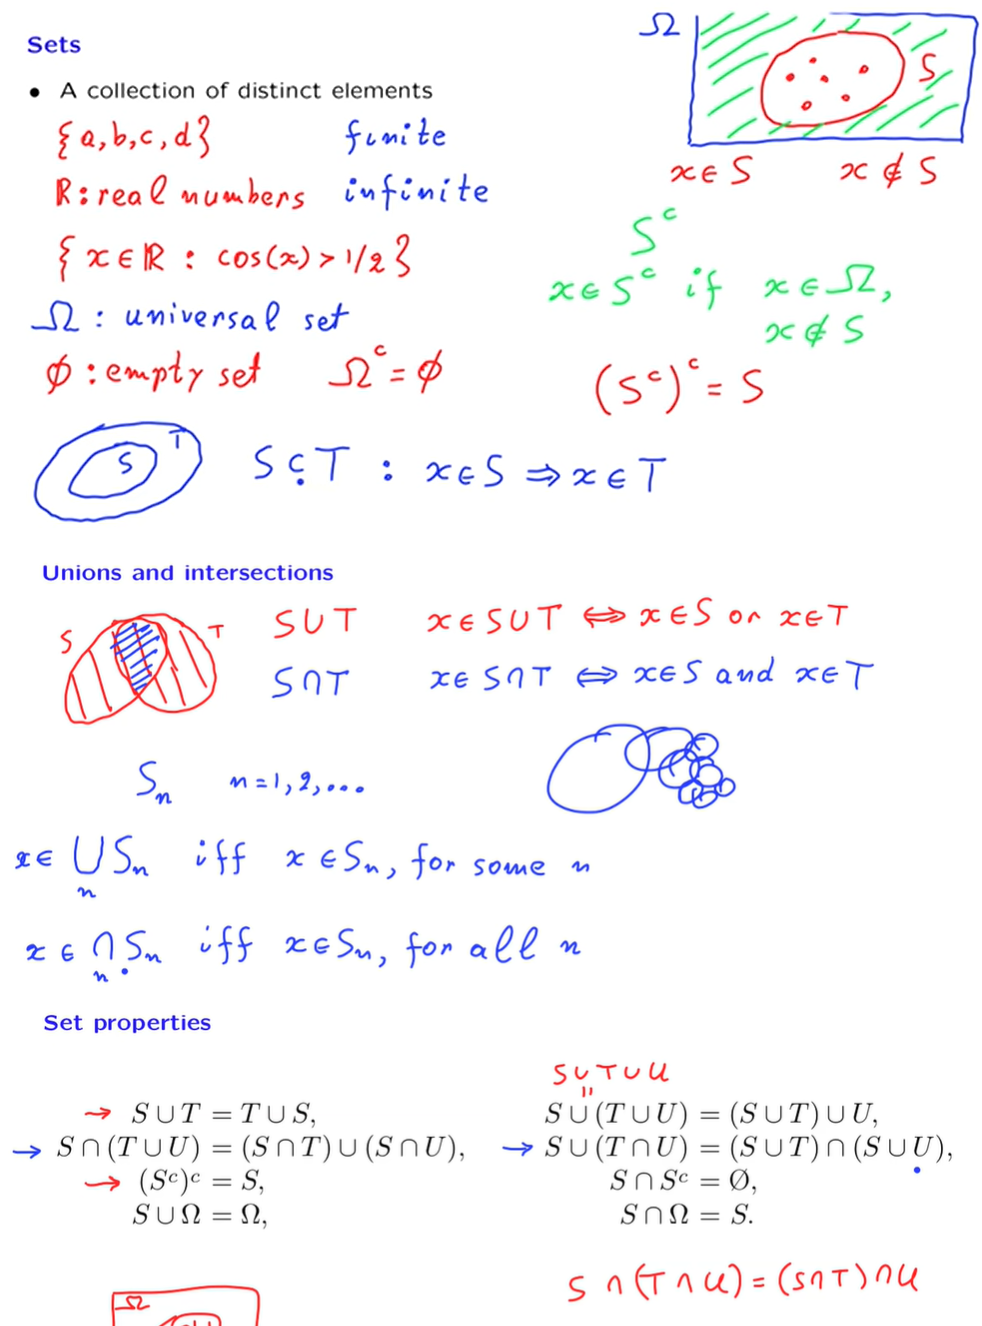 Sets
Ω
• A collection of distinct elements
S
{a,b,c,d} finite
x∈S x∉S
ℝ: real numbers infinite
Sᶜ
{x∈ℝ : cos(x)>1/2}
x∈Sᶜ if x∈Ω,
x∉S
Ω : universal set
∅ : empty set Ωᶜ=∅
(Sᶜ)ᶜ=S
S T
S⊂T : x∈S ⇒ x∈T
Unions and intersections
S T
S∪T x∈S∪T ⇔ x∈S or x∈T
S∩T x∈S∩T ⇔ x∈S and x∈T
Sₙ n=1,2,...
x∈ ⋃ₙ Sₙ iff x∈Sₙ, for some n
x∈ ⋂ₙ Sₙ iff x∈Sₙ, for all n
Set properties
S∪T∪U
=
→ S∪T = T∪S, S∪(T∪U) = (S∪T)∪U,
→ S∩(T∪U) = (S∩T)∪(S∩U), → S∪(T∩U) = (S∪T)∩(S∪U),
→ (Sᶜ)ᶜ = S, S∩Sᶜ = Ø,
S∪Ω = Ω, S∩Ω = S.
S∩(T∩U)=(S∩T)∩U
Ω